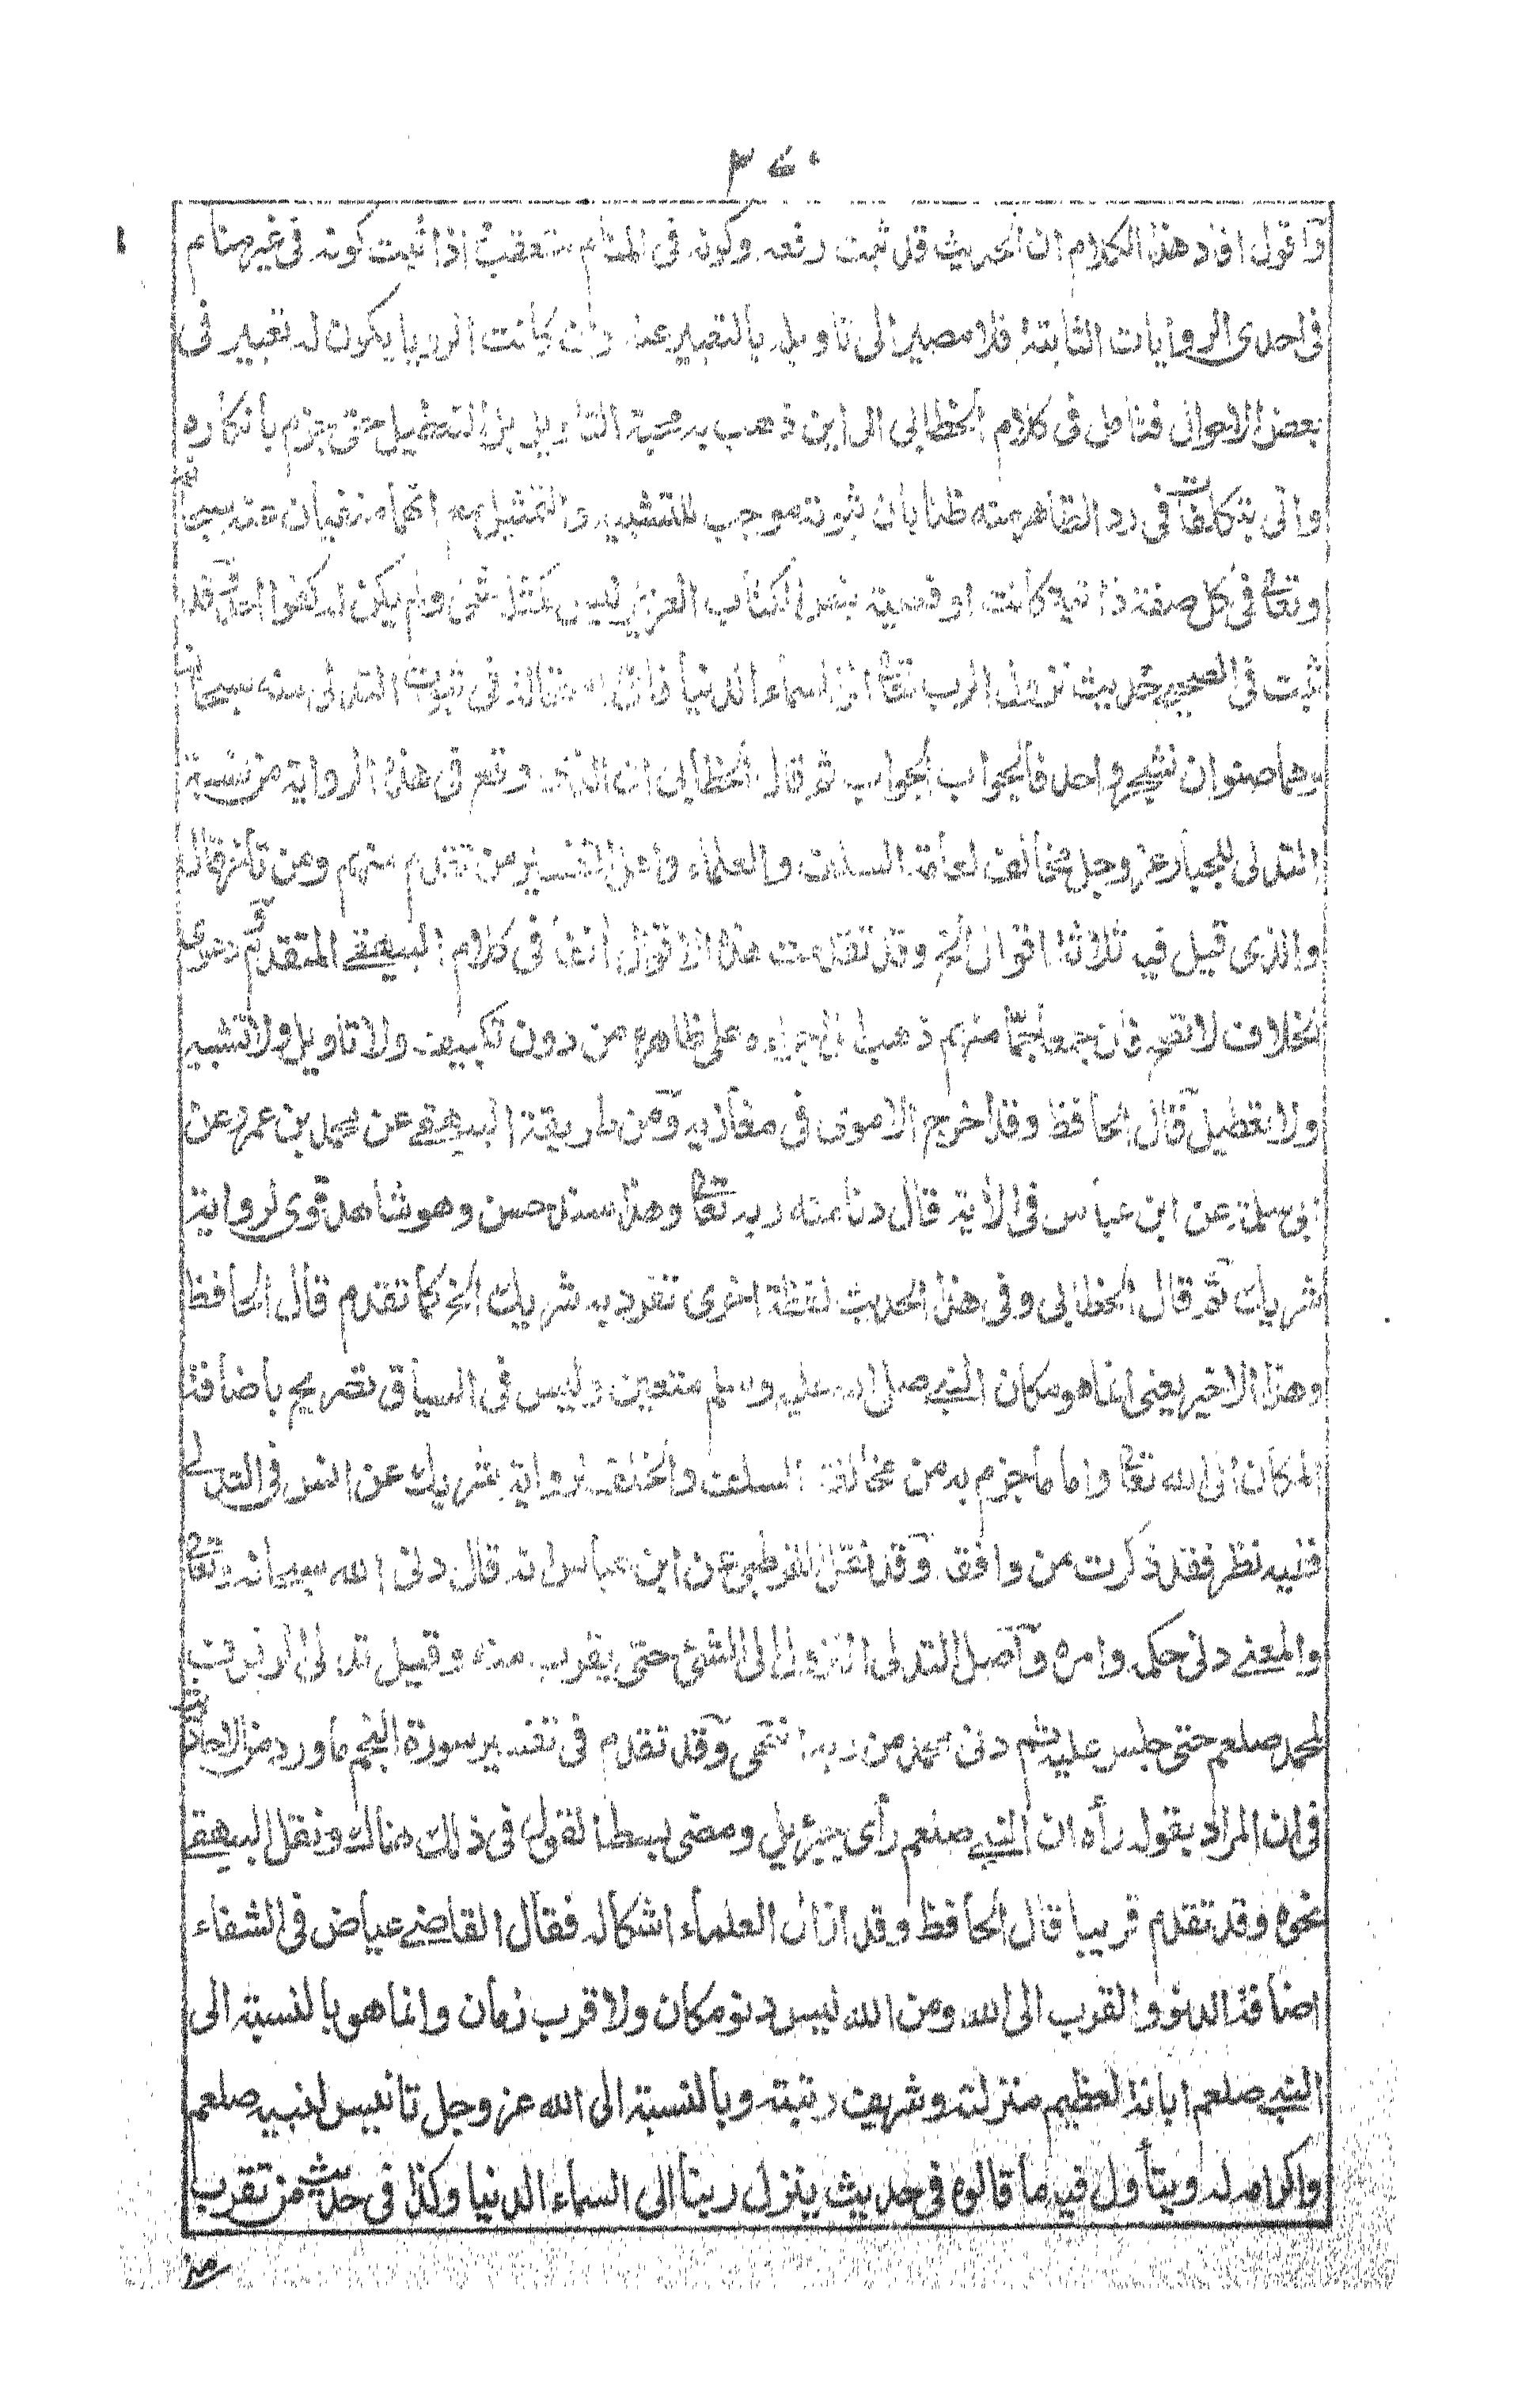 ٣٧٠
واقول افاد هذا الكلام ان الحديث قد ثبت رفعه وكونه في المنام متعقب اذا ثبت كونه في غير منام
في احدى الروايات الثابتة فلا مصير الى تاويله بالتعبير عنه وان كانت الرويا يكون له تعبير في
بعض الاحوال فتامل في كلام الخطابي الى اين ذهب به محبة التاويل بل التعطيل حتى جزم بانكاره
واتى بتكلفات في رد الظاهر منه ظنا بان ثبوته موجب للتشبيه والتمثيل مع انهما منفيان عنه سبحانه
وتعالى في كل صفة ذاتية كانت او فعلية بنص الكتاب العزيز ليس كمثله شئ ولم يكن له كفوا احد وقد
ثبت في الصحيح حديث نزول الرب تعالى الى السماء الدنيا فاي استحالة في ثبوت التدلي منه سبحانه
وهما صنوان شجر واحد فالجواب الجواب ثم قال الخطابي ان الذي وقع في هذه الرواية من نسبة
التدلي للجبار عز وجل مخالف لعامة السلف والعلماء واهل التفسير من تقدم منهم ومن تاخر قال
والذي قيل فيه ثلاثة اقوال الخ وقد تقدمت هذه الاقوال آنفا في كلام البيهقي المتقدم ودعوى
الخلاف لا تصح فان جمعا جما منهم ذهب الى اجراءه على ظاهره من دون تكييف ولا تاويل ولا تشبيه
ولا تعطيل قال الحافظ وقد اخرج الاموي في مغازيه ومن طريقة البيهقي عن محمد بن عمرو عن
ابي سلمة عن ابن عباس في الآية قال دنا منه ربه تعالى وهذا سند حسن وهو شاهد قوي لرواية
شريك ثم قال الخطابي وفي هذا الحديث لفظة اخرى تفرد به شريك الخ كما تقدم قال الحافظ
وهذا الاخير يعني انما هو مكان النبي صلى الله عليه وسلم متعين وليس في السياق تصريح باضافة
المكان الى الله تعالى واما ما جزم به من مخالفة السلف والخلف لرواية شريك عن انس في التدلي
ففيه نظر فقد ذكرت من وافقه وقد نقل القرطبي عن ابن عباس انه قال دنى الله سبحانه وتعالى
والمعنى دنى حكمه وامره وآصل التدلي النزول الى الشئ حتى يقرب منه وقيل تدلى الرفرف
لمحمد صلعم حتى جلس عليه ثم دنى محمد من ربه انتهى وقد تقدم في تفسير سورة النجم ما ورد من الاحاديث
في ان المراد بقوله رأه ان النبي صلعم رأى جبريل ومضى بسط القول في ذلك هناك ونقل البيهقي
نحوه وقد تقدم قريبا قال الحافظ وقد ازال العلماء اشكاله فقال القاضي عياض في الشفاء
اضافة الدنو والقرب الى الله ومن الله ليس دنو مكان ولا قرب زمان وانما هو بالنسبة الى
النبي صلعم ابانة لعظيم منزلته وشريف رتبته وبالنسبة الى الله عز وجل تانيس لنبيه صلعم
واكرام له ويتأول فيه ما قالوه في حديث ينزل ربنا الى السماء الدنيا وكذا في حديث من تقرب